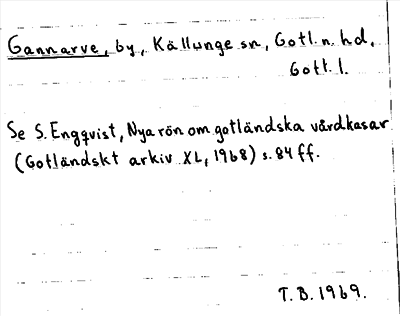 Gannarve, by, Källunge sn, Gotl. n. hd,
Gotl. l.
Se S. Engqvist, Nya rön om gotländska vårdkasar
(Gotländskt arkiv XL, 1968) s. 84 ff.
T. B. 1969.